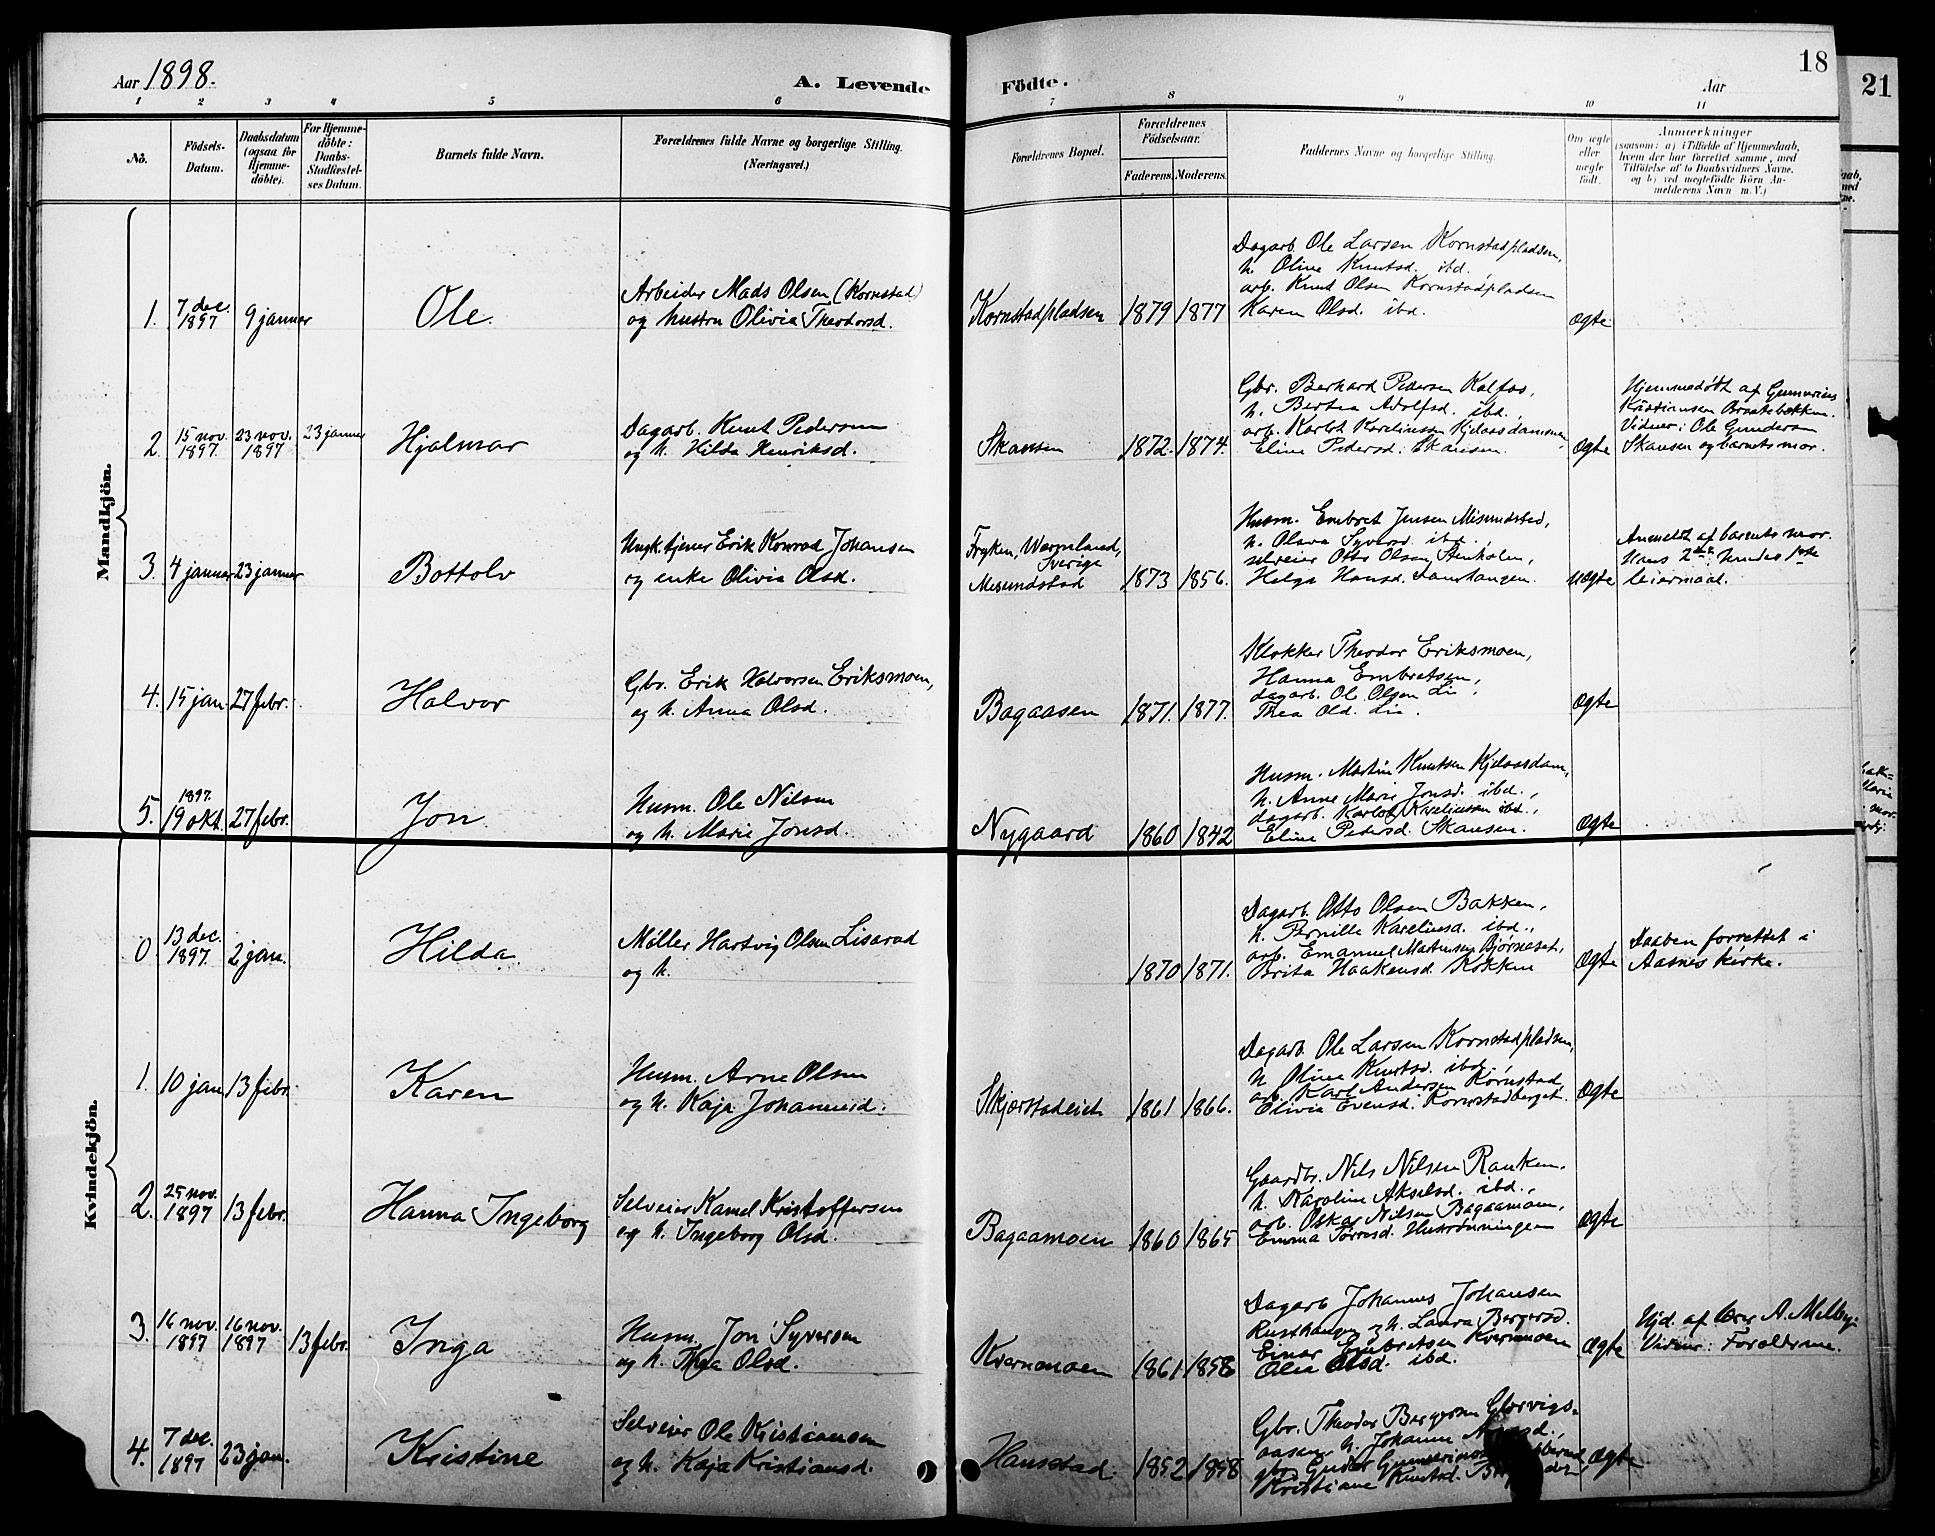 Aar 1898.
A. Levende Födte.
Aar
18
21
1 2 3 4 5 6 7 8 9 10 11
No.
Födsels-Datum.
Daabsdatum (ogsaa för Hjemme-döbte).
For Hjemme-döbte: Daabs-Stadfæstel-ses Datum.
Barnets fulde Navn.
Forældrenes fulde Navne og borgerlige Stilling.
(Næringsvei.)
Forældrenes Bopæl.
Forældrenes Födselsaar.
Faderens. Moderens.
Faddernes Navne og borgerlige Stilling.
Om ægte eller uægte født.
Anmærkninger
(saasom: a) i Tilfælde af Hjemmedaab,
hvem der har forrettet samme, med
Tilföielse af to Daabsvidners Navne,
og b) ved uægtefödte Börn An-
melderens Navn m. V.)
Mandkjön.
1. 7 dec. 1897 9 januar
Ole.
Arbeider Mads Olsen (Kornstad)
og hustru Olivia Theodorsd.
Kornstadpladsen 1879 1877
Dagarb. Ole Larsen Kornstadpladsen,
h. Oline Knutsd. ibd.
arb. Knut Olsen Kornstadpladsen
Karen Olsd. ibd.
Ægte
2. 15 nov. 1897. 23 nov. 1897 23 januar
Hjalmar
Dagarb. Knut Pedersen
og h. Hilda Henriksd.
Skansen 1872. 1874.
Gbr. Berhard Pedersen Kalfos,
h. Bertea Adolfsd. ibd.,
arb. Karlot Kareliussen Kjelaasdammen,
Eline Pedersd. Skansen.
Ægte
Hjemmedøbt af Gunnerius
Kristiansen Braatebakken.
Vidner: Ole Gundersen
Skansen og barnets mor.
3. 4 januar 23 januar
Bottolv
Ungk. tjener Erik Konrad Johansen
og enke Olivia Olsd.
Fryken, Wermland,
Sverige
Mesundstad 1873 1856.
Husm. Embret Jensen Misundstad,
h. Olava Syversd. ibd.,
selveier Otto Olsen Stenholen,
Helga Hansd.
Uægte
Anmeldt af barnets mor.
Hans 2det, hendes 1ste
leiermaal.
4. 15 jan. 27 febr.
Halvor
Gbr. Erik Halvorsen Eriksmoen,
og h. Anna Olsd.
Bagaasen 1871. 1877.
Klokker Theodor Eriksmoen,
Hanna Embretsen,
dagarb. Ole Olsen Li,
Thea Old. Lie.
Ægte
5. 1897. 19 okt. 27 febr.
Jon
Husm. Ole Nilsen
og h. Marie Jonsd.
Nygaard 1860 1842
Husm. Martin Knutsen Kjelaasdam,
h. Anne Marie Jonsd. ibd.,
dagarb. Karlot Kareliussen ibd.,
Eline Pedersd. Skansen.
Ægte
Kvindekjön.
0. 13 dec. 1897. 2 jan.
Hilda
Møller Hartvig Olsen Lisarud
og h.
1870 1871.
Dagarb. Otto Olsen Bakken,
h. Pernille Kareliusd. ibd.,
arb. Emanuel Martinsen Bjørneset,
Brita Haakensd. Kokken
Ægte
Daaben forrettet i
Aasnes kirke.
1. 10 jan 13 febr.
Karen
Husm. Arne Olsen
og h. Kaja Johannesd.
Skjærstadeiet 1861 1866.
Dagarb. Ole Larsen Kornstadpladsen,
h. Oline Knutsd. ibd.
arb. Karl Andersen Kornstad,
Olivia Evensd. Kornstadberget.
Ægte
2. 25 nov. 1897 13 febr.
Hanna Ingeborg
Selveier Kamel Kristoffersen
og h. Ingeborg Olsd.
Bagaamoen 1860 1865
Gaardbr. Nils Nilsen Ranken.
h. Karoline Akselsd. ibd.,
arb. Oskar Nilsen Bagaamoen,
Emma Torresd.
Ægte
3. 16 nov. 1897 16 nov. 1897 13 febr.
Inga
Husm. Jon Syversen
og h. Thea Olsd.
Kvernmoen 1861 1858
Dagarb Johannes Johansen
Rusthaugen og h. Laura Bergersd.
Einar Embretsen Kvernmoen
Olea Olsd. ibd.
Ægte
Hjd. af lærer A. Melby.
Vidner: Forældrene.
4. 7 dec. 1897 23 jan.
Kristine
Selveier Ole Kristiansen
og h. Kaja Kristiansd.
Hanestad. 1852 1858
Gbr. Theodor Bergersen Glorvigs-
aasen, h. Johanne
gbr. Guder Gunneriusen
Kristiane Knutsd.
Ægte